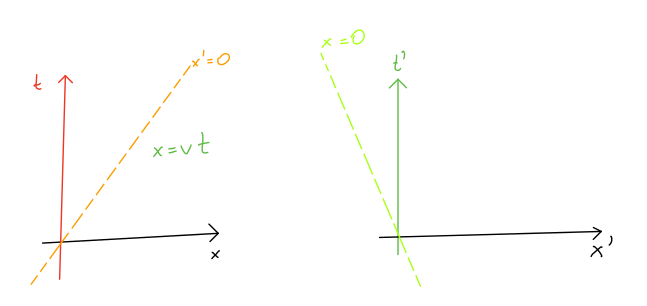 t
x'=0
x=vt
x
x=0
t'
x'